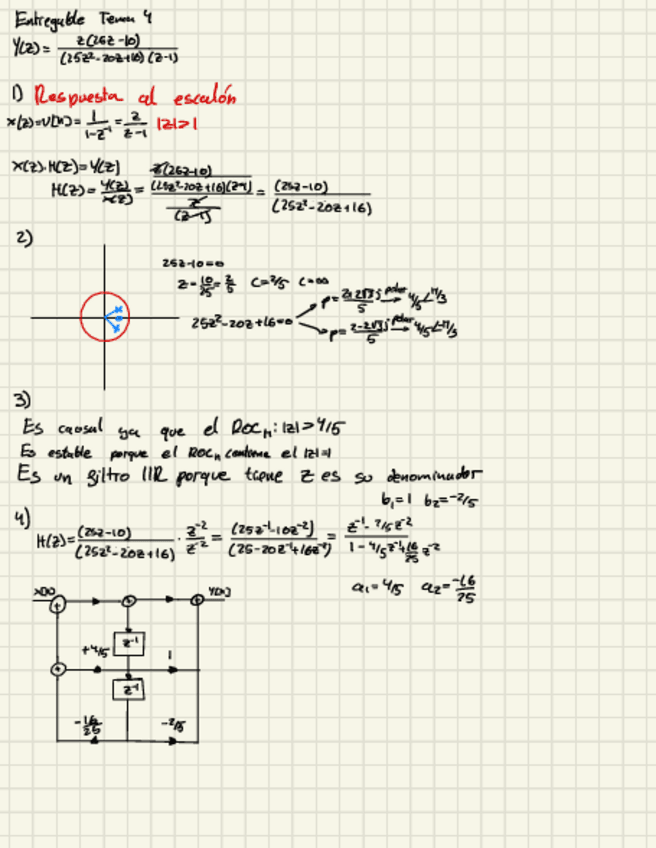 Entregable Tema 4
Y(z) = z(25z-10) / (25z²-20z+16)(z-1)
1) Respuesta al escalón
x(z)=U[n]= 1/(1-z⁻¹) = z/(z-1) |z|>1
X(z)·H(z)=Y(z)
H(z)= Y(z)/X(z) = z(25z-10)/(25z²-20z+16)(z-1) / z/(z-1) = (25z-10)/(25z²-20z+16)
2)
25z-10=0
z=10/25=2/5 C=2/5 C=∞
25z²-20z+16=0
p=2+2√3j/5 polar → 4/5∠π/3
p=2-2√3j/5 polar → 4/5∠-π/3
3)
Es causal ya que el ROC_H: |z|>4/5
Es estable porque el ROC_H contiene el |z|=1
Es un filtro IIR porque tiene z es su denominador
b₁=1 b₂=-2/5
4)
H(z)= (25z-10)/(25z²-20z+16) · z⁻²/z⁻² = (25z⁻¹-10z⁻²)/(25-20z⁻¹+16z⁻²) = z⁻¹-2/5z⁻²/1-4/5z⁻¹+16/25z⁻²
a₁=4/5 a₂=-16/25
x[n] y[n]
z⁻¹
+4/5 1
z⁻¹
-16/25 -2/5